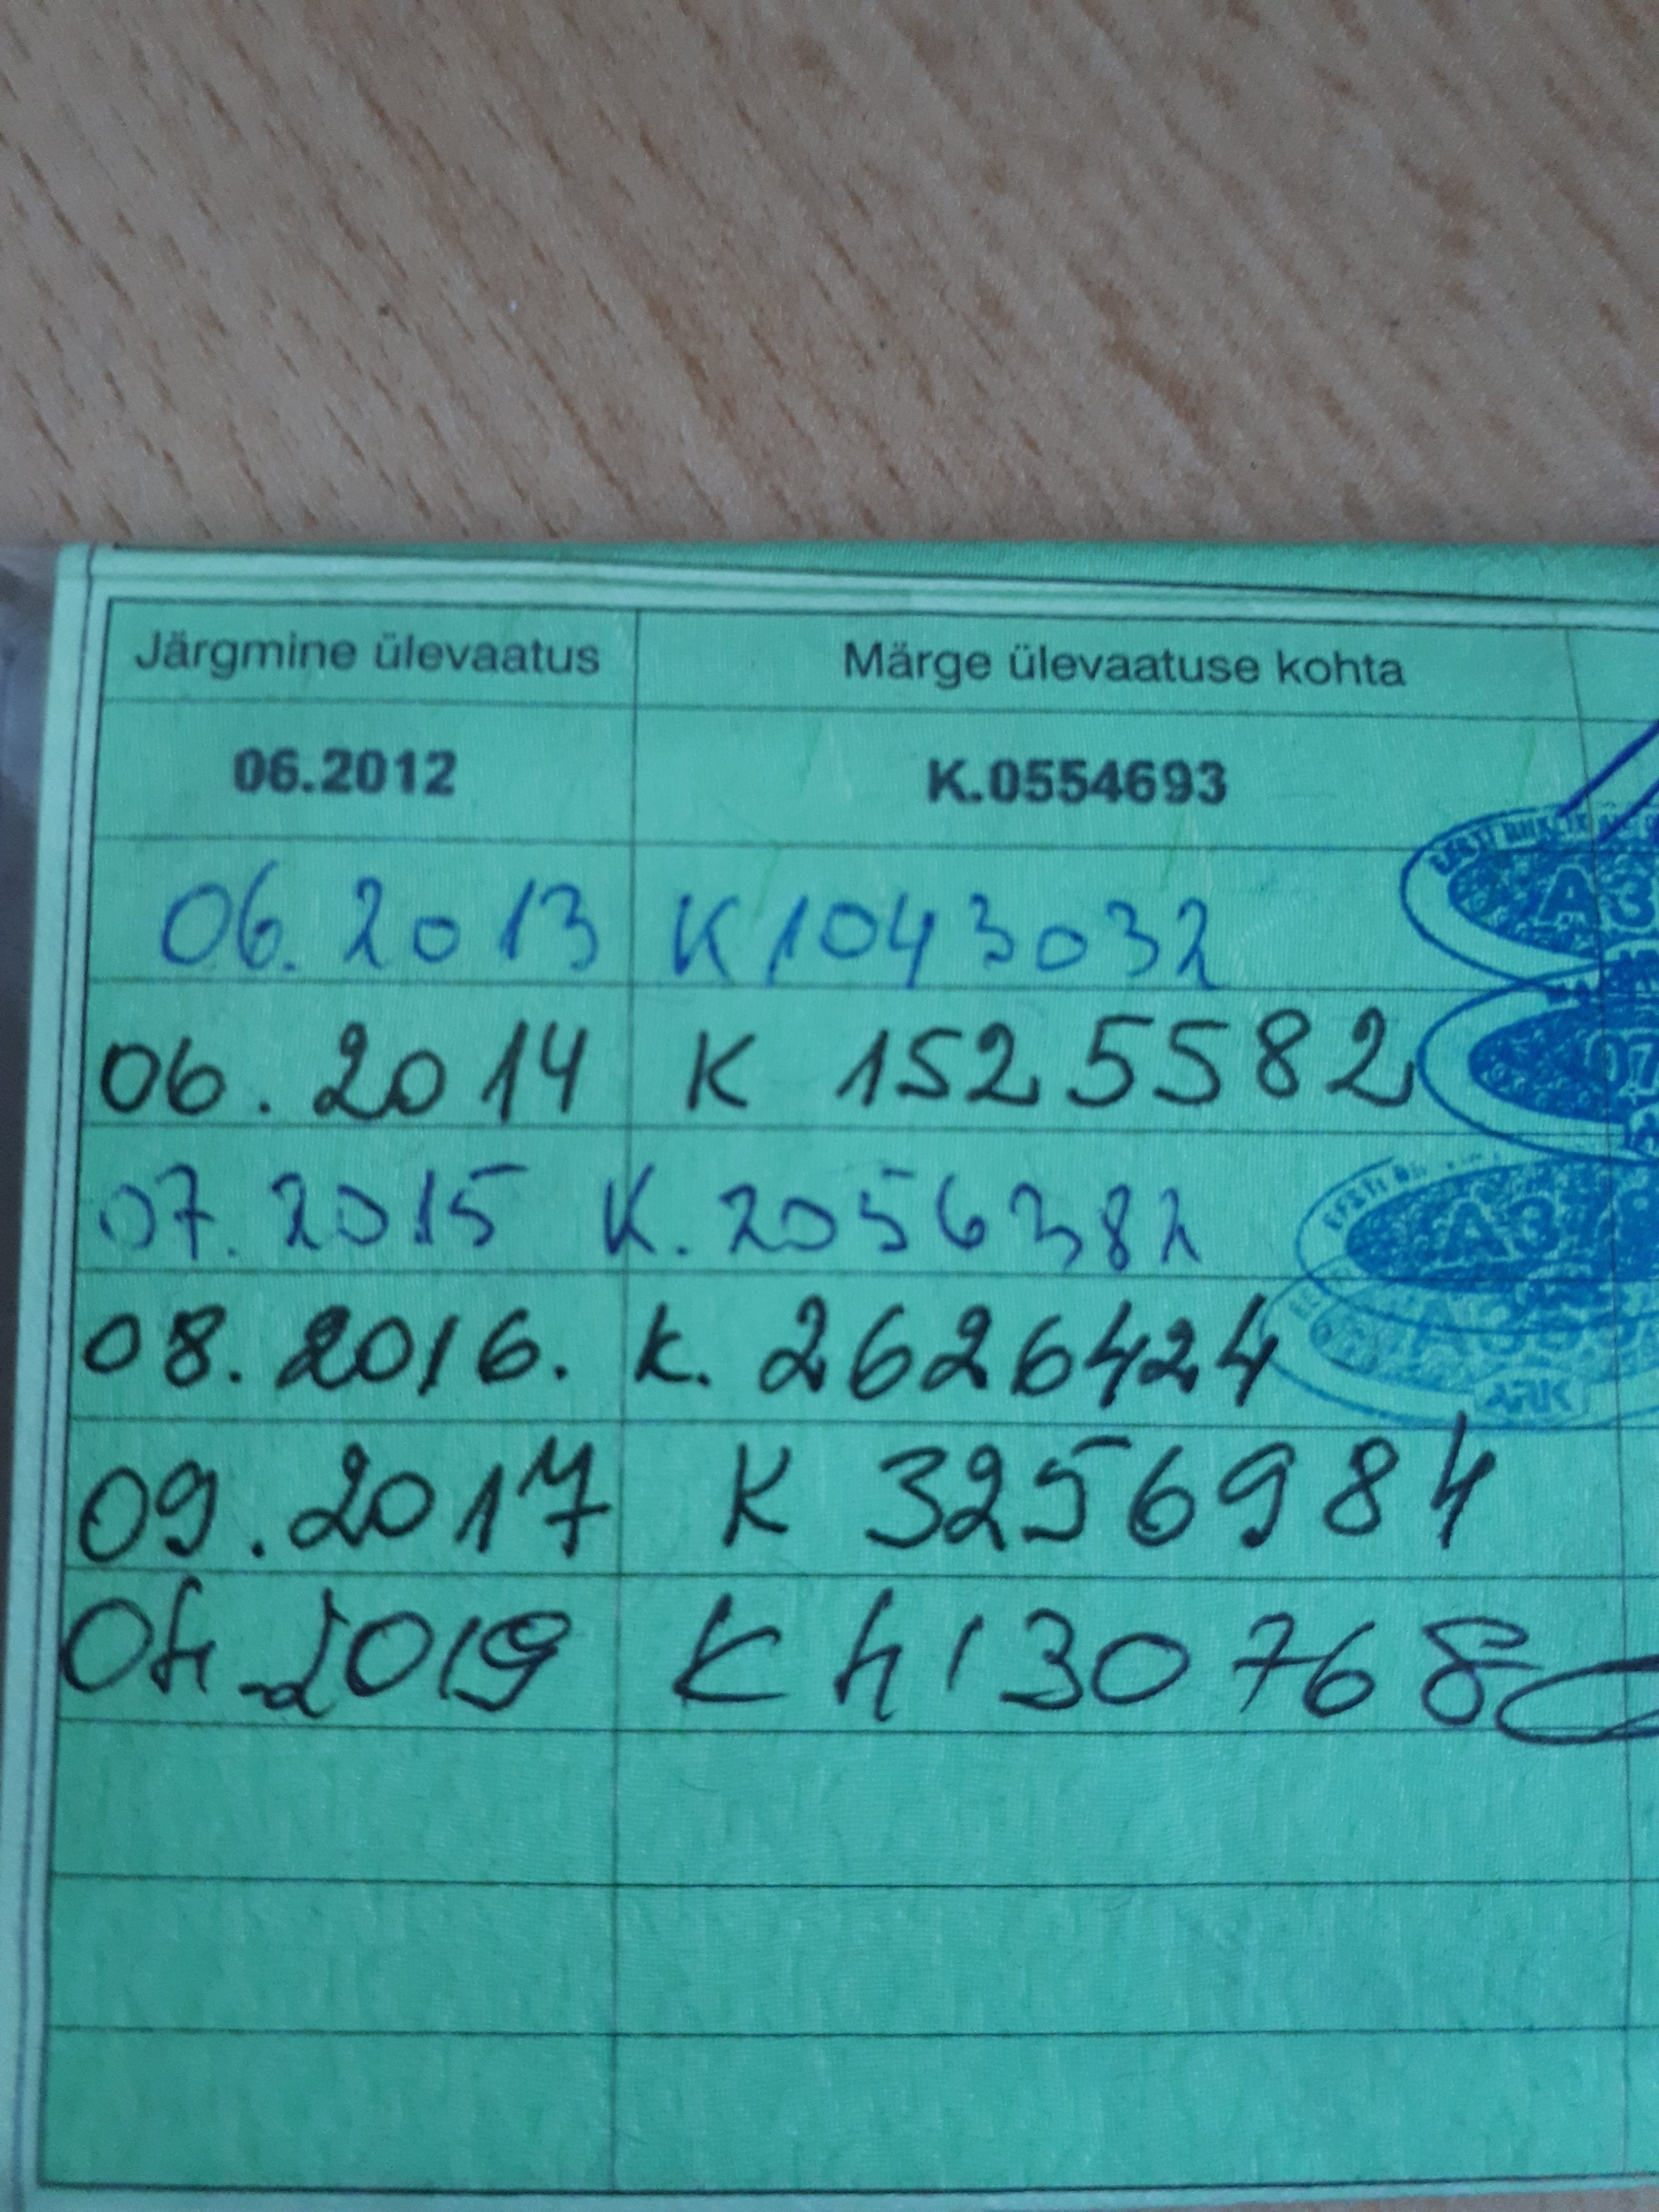 Järgmine ülevaatus Märge ülevaatuse kohta
06.2012 K.0554693
06.2013 K1043032
06.2014 K 1525582
07.2015 K.2056382
08.2016. K. 2626424
09.2017 K 3256984
04.2019 K 4130768
EESTI
A3
07
EESTI
A37
ARK